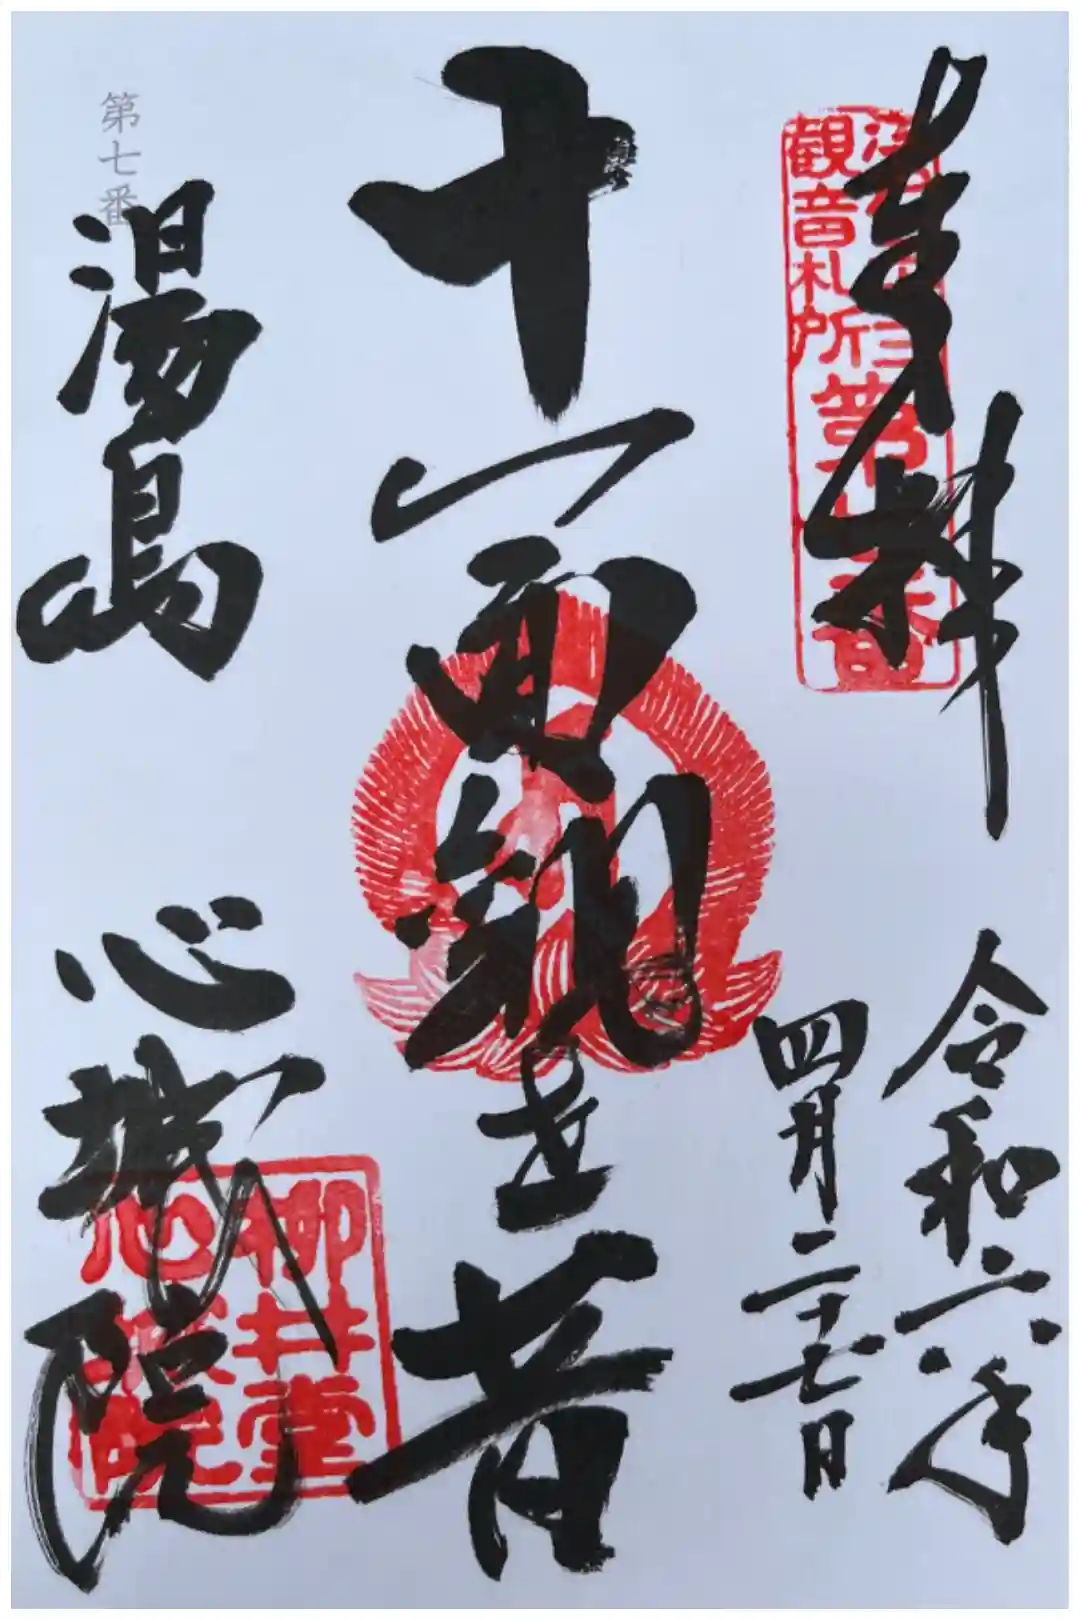 奉拝
観音札所
第七番
令和六年
四月二十七日
十一面観世音
第七番
湯島
心城院
柳井堂
心城院